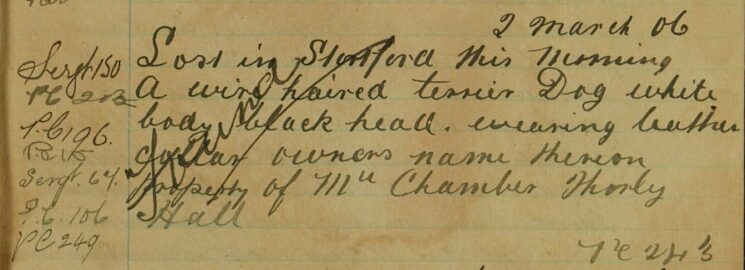 2 March 06
Lost in Stortford this Morning
A wire haired terrier Dog white
body black head. wearing leather
collar owners name thereon
property of Mr Chamber Thorley
Hall
Sergt 150
P.C 96.
Sergt. 64.
P.C. 106
PC 249